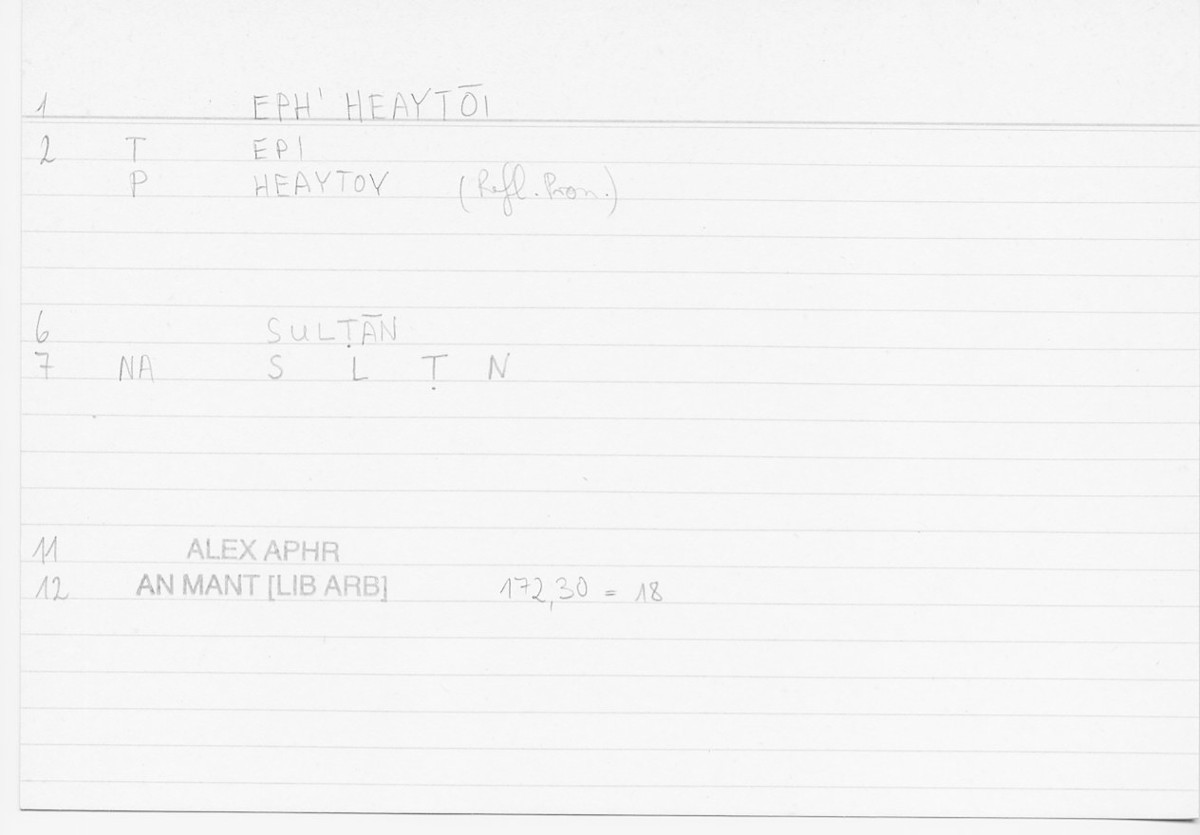 1 EPH' HEAYTŌI
2 T EPI
P HEAYTOY (Refl. Pron.)
6 SULṬĀN
7 NA S L Ṭ N
11 ALEX APHR
12 AN MANT [LIB ARB] 172,30 = 18